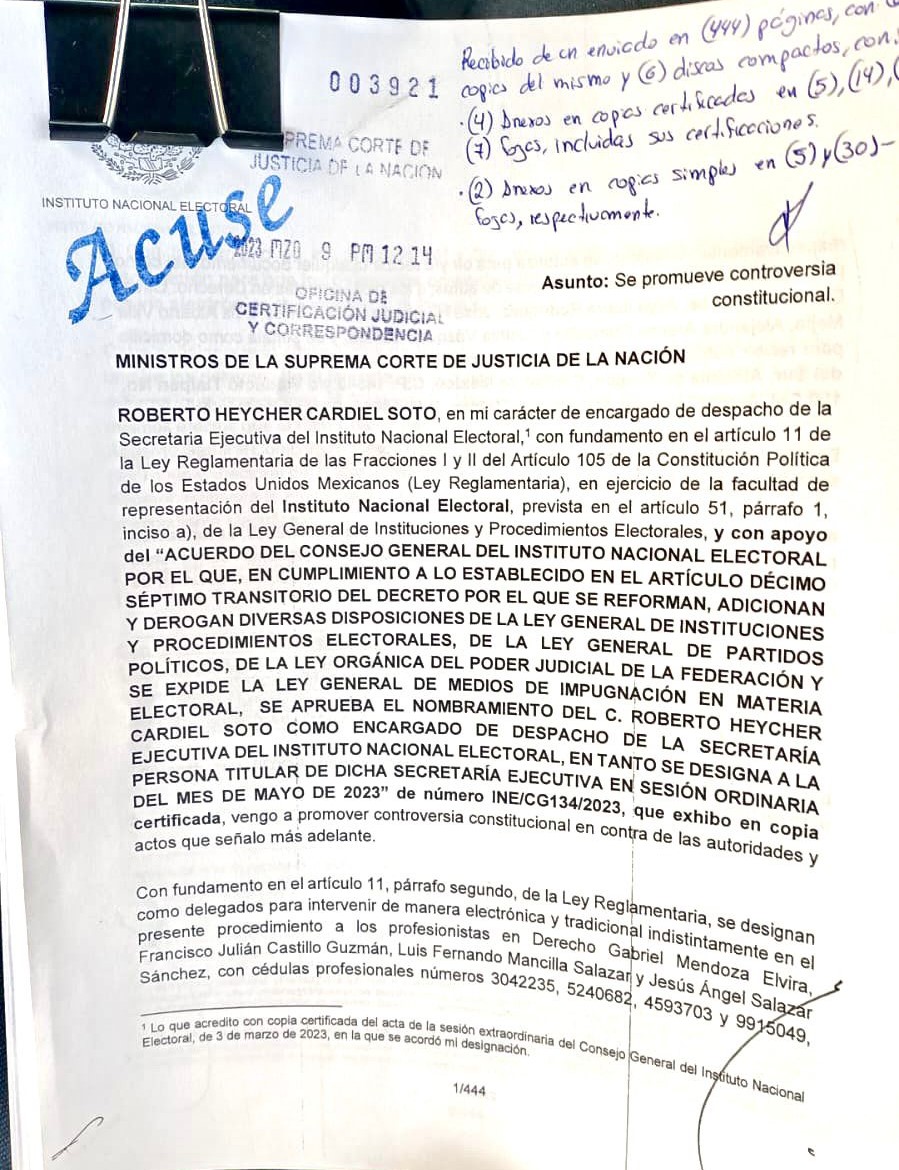 Recibido de un enviado en (444) páginas, con
copias del mismo y (6) discos compactos, con:
003921
·(4) Anexos en copias certificadas en (5), (14),
(7) fojas, incluidas sus certificaciones.
·(2) Anexos en copias simples en (5) y (30)-
fojas, respectivamente.
SUPREMA CORTE DE
JUSTICIA DE LA NACIÓN
INSTITUTO NACIONAL ELECTORAL
Acuse
2023 MZO 9 PM 12 14
OFICINA DE
CERTIFICACIÓN JUDICIAL
Y CORRESPONDENCIA
Asunto: Se promueve controversia
constitucional.
MINISTROS DE LA SUPREMA CORTE DE JUSTICIA DE LA NACIÓN
ROBERTO HEYCHER CARDIEL SOTO, en mi carácter de encargado de despacho de la
Secretaria Ejecutiva del Instituto Nacional Electoral,¹ con fundamento en el artículo 11 de
la Ley Reglamentaria de las Fracciones I y II del Artículo 105 de la Constitución Política
de los Estados Unidos Mexicanos (Ley Reglamentaria), en ejercicio de la facultad de
representación del Instituto Nacional Electoral, prevista en el artículo 51, párrafo 1,
inciso a), de la Ley General de Instituciones y Procedimientos Electorales, y con apoyo
del “ACUERDO DEL CONSEJO GENERAL DEL INSTITUTO NACIONAL ELECTORAL
POR EL QUE, EN CUMPLIMIENTO A LO ESTABLECIDO EN EL ARTÍCULO DÉCIMO
SÉPTIMO TRANSITORIO DEL DECRETO POR EL QUE SE REFORMAN, ADICIONAN
Y DEROGAN DIVERSAS DISPOSICIONES DE LA LEY GENERAL DE INSTITUCIONES
Y PROCEDIMIENTOS ELECTORALES, DE LA LEY GENERAL DE PARTIDOS
POLÍTICOS, DE LA LEY ORGÁNICA DEL PODER JUDICIAL DE LA FEDERACIÓN Y
SE EXPIDE LA LEY GENERAL DE MEDIOS DE IMPUGNACIÓN EN MATERIA
ELECTORAL, SE APRUEBA EL NOMBRAMIENTO DEL C. ROBERTO HEYCHER
CARDIEL SOTO COMO ENCARGADO DE DESPACHO DE LA SECRETARÍA
EJECUTIVA DEL INSTITUTO NACIONAL ELECTORAL, EN TANTO SE DESIGNA A LA
PERSONA TITULAR DE DICHA SECRETARÍA EJECUTIVA EN SESIÓN ORDINARIA
DEL MES DE MAYO DE 2023” de número INE/CG134/2023, que exhibo en copia
certificada, vengo a promover controversia constitucional en contra de las autoridades y
actos que señalo más adelante.
Con fundamento en el artículo 11, párrafo segundo, de la Ley Reglamentaria, se designan
como delegados para intervenir de manera electrónica y tradicional indistintamente en el
presente procedimiento a los profesionistas en Derecho Gabriel Mendoza Elvira,
Francisco Julián Castillo Guzmán, Luis Fernando Mancilla Salazar y Jesús Ángel Salazar
Sánchez, con cédulas profesionales números 3042235, 5240682, 4593703 y 9915049,
¹ Lo que acredito con copia certificada del acta de la sesión extraordinaria del Consejo General del Instituto Nacional
Electoral, de 3 de marzo de 2023, en la que se acordó mi designación.
1/444